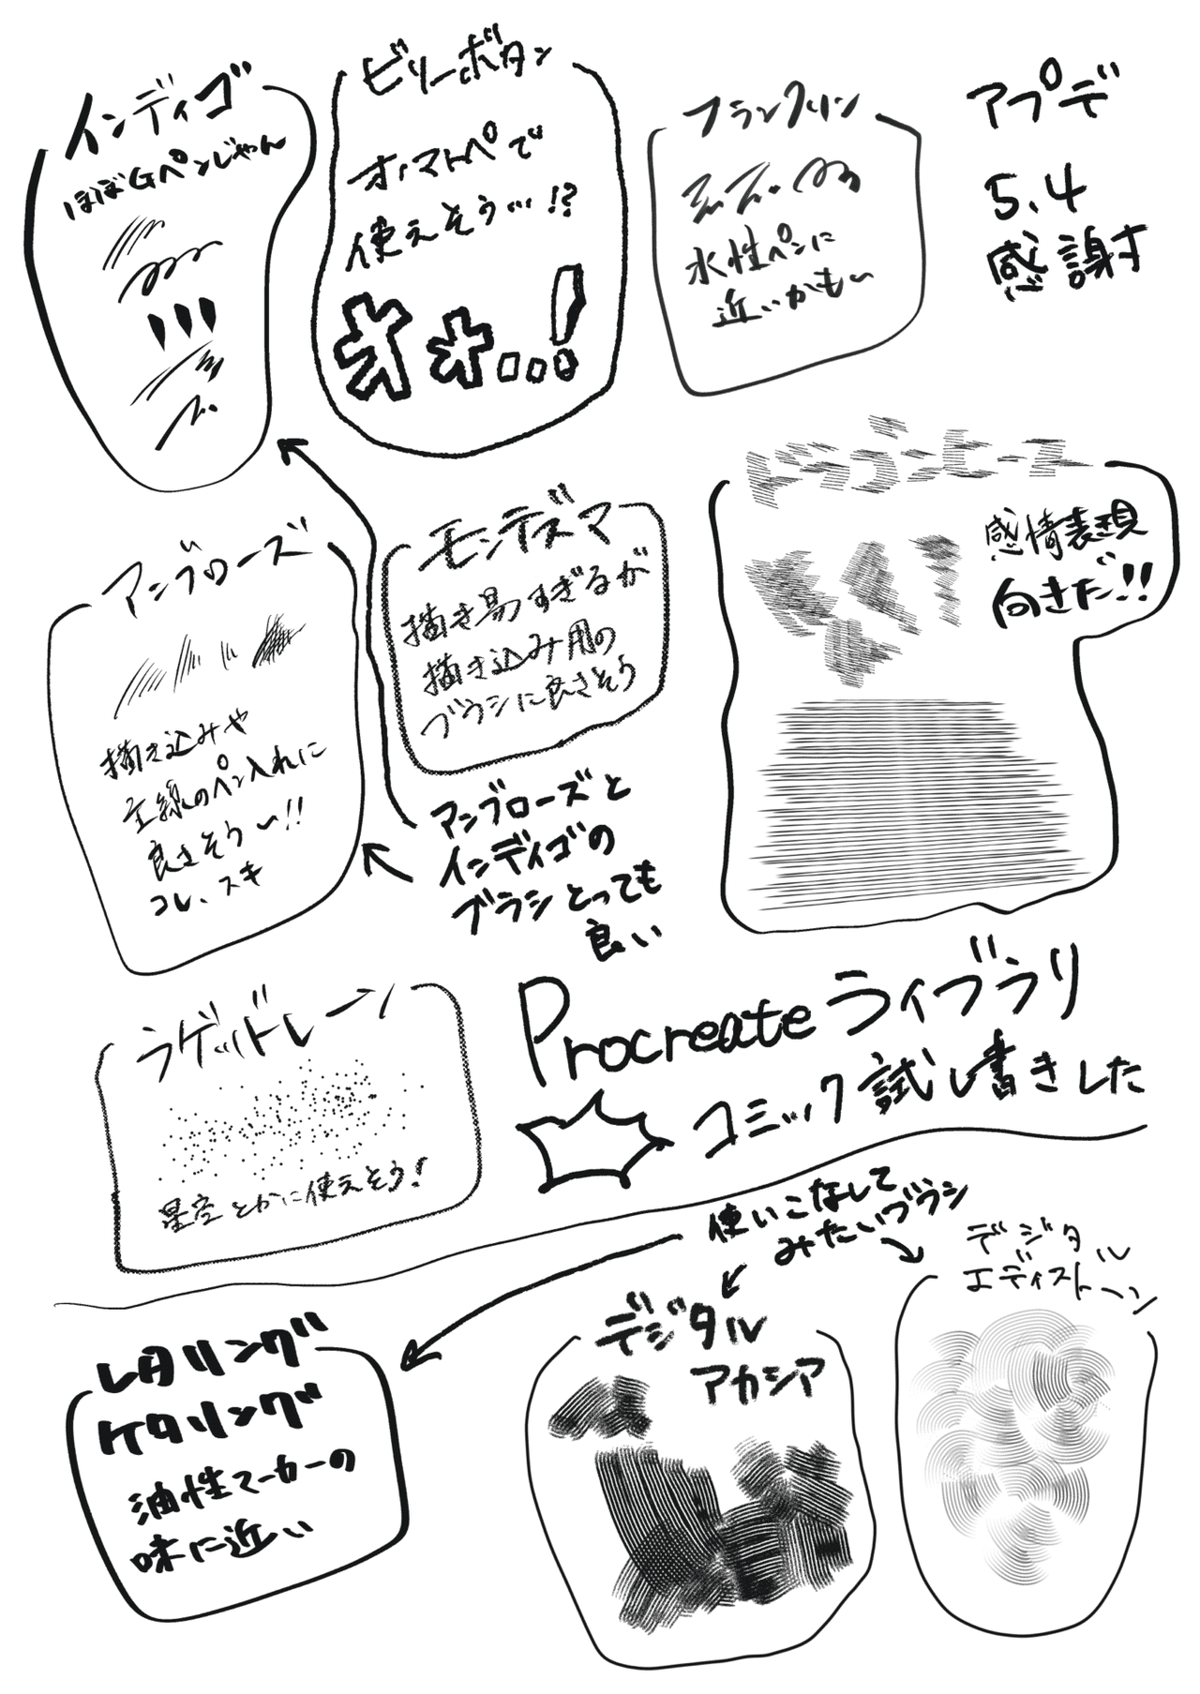 インディゴ
ほぼGペンじゃん
ビリーボタン
オノマトペで
使えそう…!?
オォ…!
フランクリン
水性ペンに
近いかも〜
アプデ
5.4
感謝
アンブローズ
描き込みや
主線のペン入れに
良さそう〜!!
コレ、スキ
モンテズマ
描き易すぎるが
描き込み用の
ブラシに良さそう
ドラゴンヒース
感情表現
向きだ!!
アンブローズと
インディゴの
ブラシとっても
良い
ラゲッドレーン
星空とかに使えそう!
Procreateライブラリ
コミック試し書きした
使いこなして
みたいブラシ
レタリング
ケタリング
油性マーカーの
味に近い
デジタル
アカシア
デジタル
エディストーン